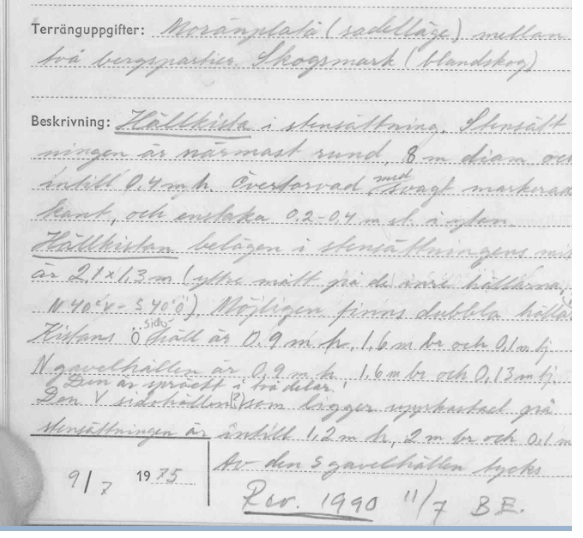 Terränguppgifter: Moränplatå (sadelläge) mellan
två bergspartier. Skogsmark (blandskog)
Beskrivning: Hällkista i stensättning. Stensätt
ningen är närmast rund, 8 m diam och
intill 0.4 m h. Övertorvad med svagt markerad
kant, och enstaka 0,2-0,4 m st i ytan.
Hällkistan belägen i stensättningens
är 2,1x1,3 m (yttre mått på de inre hällarna,
N40°V - S40°Ö). Möjligen finns dubbla
Kistans Ö sidohäll är 0.9 m h, 1,6 m br och 0,1 m tj
N gavelhällen är 0,9 m h 1,6 m br och 0,13 m tj.
Den är spräckt i två delar.
Den V sidohällen(?) som ligger uppkastad på
stensättningen är intill 1,2 m h, 2 m br och 0,1 m
Av den S gavelhällen tycks
9/7 1975
Rev. 1990 11/7 BE.